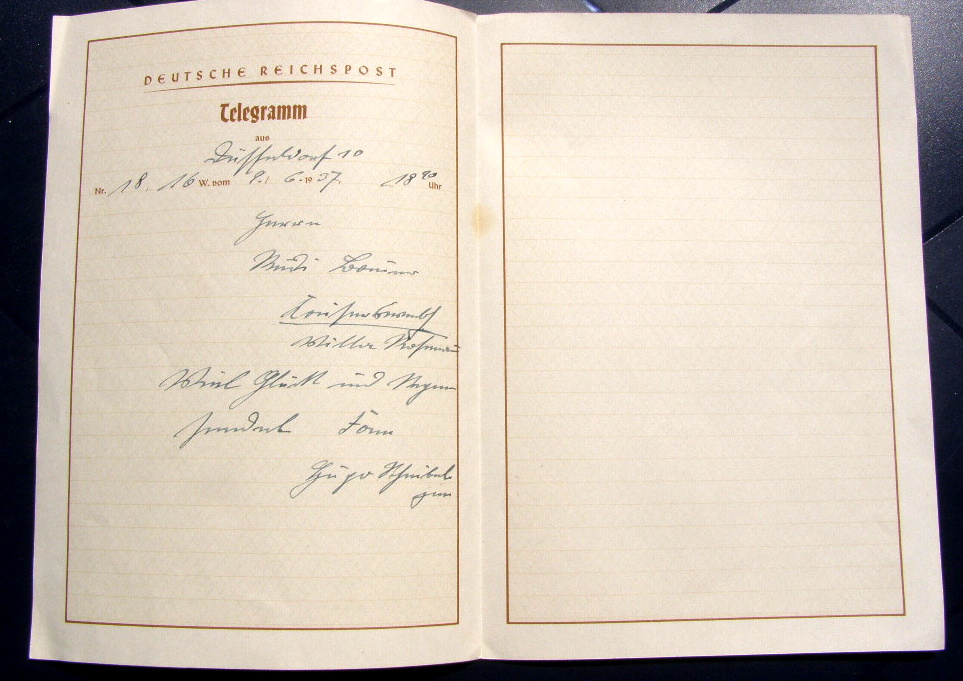 DEUTSCHE REICHSPOST
Telegramm
aus
Düsseldorf 10
Nr. 18. 16 W. vom 9./ 6. 1937. 18 40 Uhr
Herrn
Rudi
Villa
Viel Glück und Segen
sendet Fam
Hugo